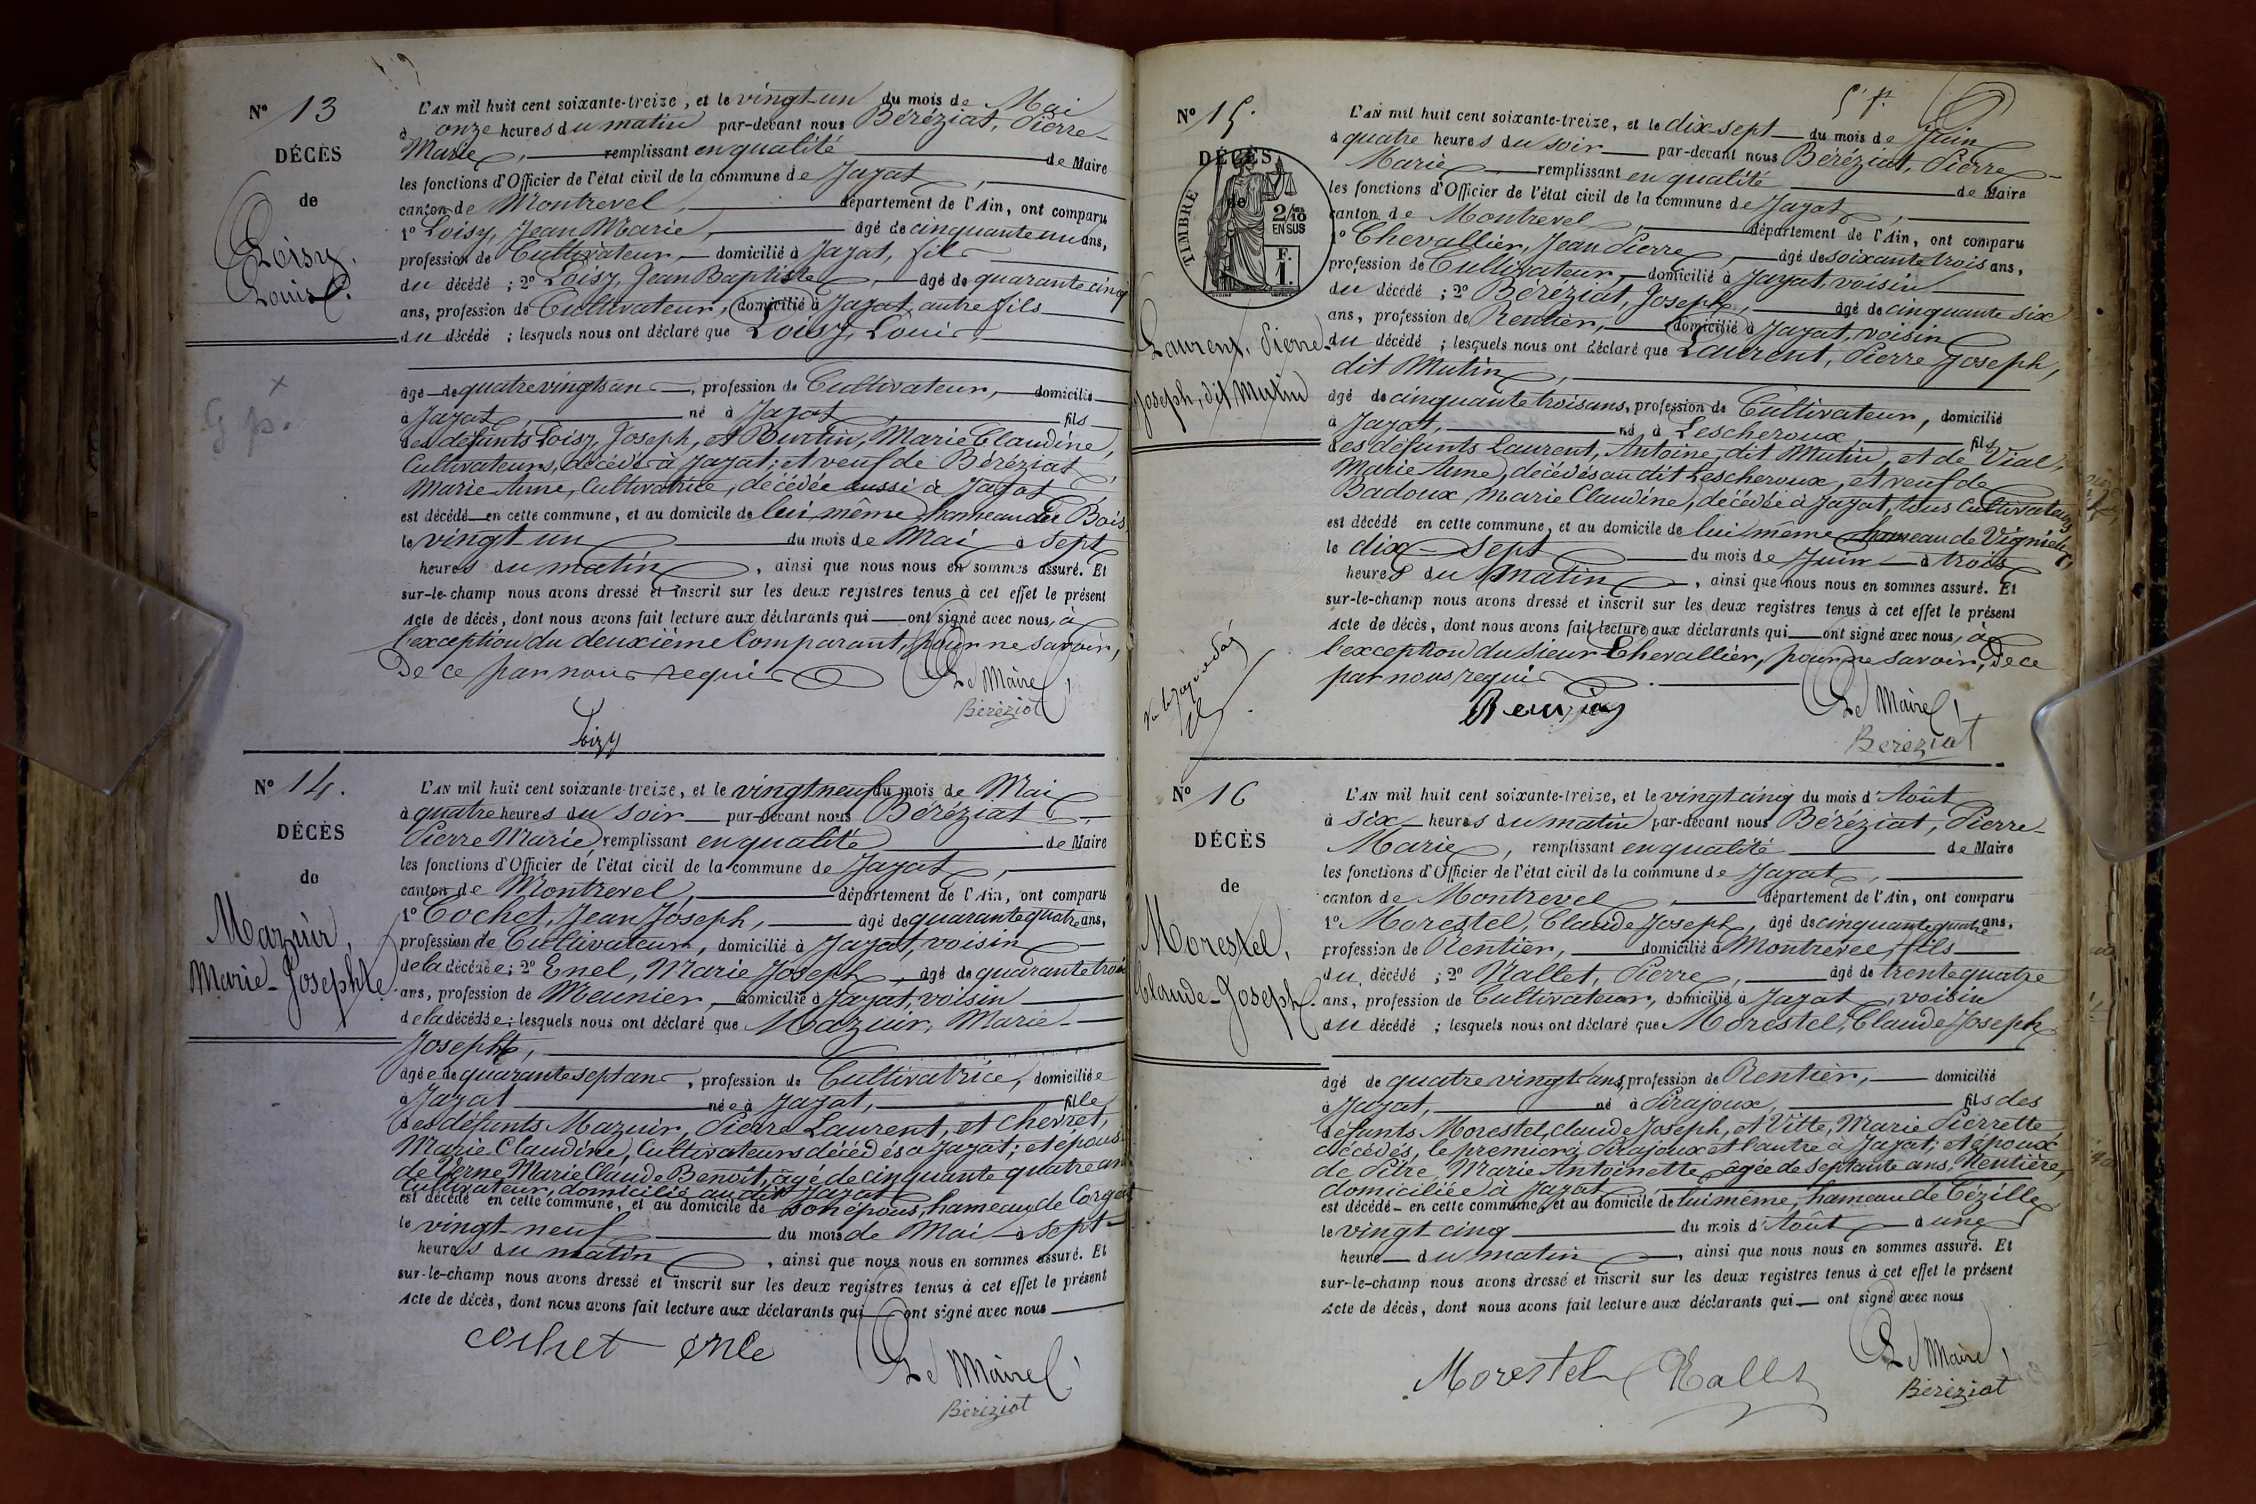 N° 13
DÉCÈS
de
Loisy,
Louis.
L'AN mil huit cent soixante-treize, et le vingt-un du mois de Mai
à onze heures du matin par-devant nous Béréziat, Pierre-
Marie, remplissant en qualité de Maire
les fonctions d'Officier de l'état civil de la commune de Jayat,
canton de Montrevel, département de l'Ain, ont comparu
1° Loisy, Jean Marie, âgé de cinquante un ans,
profession de Cultivateur, domicilié à Jayat, fils
du décédé ; 2° Loisy, Jean Baptiste, âgé de quarante cinq
ans, profession de Cultivateur, domicilié à Jayat, autre fils
du décédé ; lesquels nous ont déclaré que Loisy, Louis,
âgé de quatre vingts an, profession de Cultivateur, domicilié
à Jayat, né à Jayat, fils
des défunts Loisy, Joseph, et Burtin, Marie Claudine,
Cultivateurs, décédés à Jayat; et veuf de Béréziat
Marie Anne, Cultivatrice, décédée aussi à Jayat
est décédé en cette commune, et au domicile de lui même, hameau du Bois
le vingt un du mois de Mai à sept
heures du matin, ainsi que nous nous en sommes assuré. Et
sur-le-champ nous avons dressé et inscrit sur les deux registres tenus à cet effet le présent
Acte de décès, dont nous avons fait lecture aux déclarants qui ont signé avec nous, à
l'exception du deuxième Comparant, pour ne savoir,
De ce par nous requis
Le Maire,
Béréziat
Loizy
N° 14.
DÉCÈS
de
Mazuir,
Marie-Josephte
L'AN mil huit cent soixante-treize, et le vingt neuf du mois de Mai
à quatre heures du soir par-devant nous Béréziat
Pierre Marie remplissant en qualité de Maire
les fonctions d'Officier de l'état civil de la commune de Jayat,
canton de Montrevel, département de l'Ain, ont comparu
1° Cochet, Jean Joseph, âgé de quarante quatre ans,
profession de Cultivateur, domicilié à Jayat, voisin
de la décédée; 2° Enel, Marie Joseph, âgé de quarante trois
ans, profession de Meunier, domicilié à Jayat, voisin
de la décédée; lesquels nous ont déclaré que Mazuir, Marie-
Josephte,
âgée de quarante sept ans, profession de Cultivatrice, domiciliée
à Jayat née à Jayat, fille
des défunts Mazuir, Pierre Laurent, et Chevret,
Marie Claudine, Cultivateurs décédés à Jayat; et épouse
de Verne Marie Claude Benoît, âgé de cinquante quatre ans
Cultivateur, domicilié au dit Jayat
est décédé en cette commune, et au domicile de son époux, hameau de
le vingt-neuf du mois de Mai à sept
heures du matin, ainsi que nous nous en sommes assuré. Et
sur-le-champ nous avons dressé et inscrit sur les deux registres tenus à cet effet le présent
Acte de décès, dont nous avons fait lecture aux déclarants qui ont signé avec nous
cochet
Le Maire,
Béréziat
N° 15.
DÉCÈS
de
TIMBRE
2/10
EN SUS
F.
1.
Laurent, Pierre-
Joseph, dit Mutin
L'AN mil huit cent soixante-treize, et le dix-sept du mois de Juin
à quatre heures du soir par-devant nous Béréziat, Pierre-
Marie remplissant en qualité de Maire
les fonctions d'Officier de l'état civil de la commune de Jayat,
canton de Montrevel, département de l'Ain, ont comparu
1° Chevallier, Jean Pierre, âgé de soixante trois ans,
profession de Cultivateur, domicilié à Jayat, voisin
du décédé ; 2° Béréziat, Joseph, âgé de cinquante six
ans, profession de Rentier, domicilié à Jayat, voisin
du décédé ; lesquels nous ont déclaré que Laurent, Pierre Joseph,
dit Mutin,
âgé de cinquante trois ans, profession de Cultivateur, domicilié
à Jayat, né à Lescheroux, fils
des défunts Laurent, Antoine, dit Mutin, et de Vial,
Marie Anne, décédés au dit Lescheroux, et veuf de
Badoux, Marie Claudine, décédée à Jayat, tous Cultivateurs
est décédé en cette commune, et au domicile de lui même, hameau de
le dix-sept du mois de Juin à trois
heures du matin, ainsi que nous nous en sommes assuré. Et
sur-le-champ nous avons dressé et inscrit sur les deux registres tenus à cet effet le présent
Acte de décès, dont nous avons fait lecture aux déclarants qui ont signé avec nous, à
l'exception du sieur Chevallier, pour ne savoir, De ce
par nous requis.
Le Maire,
Béréziat
N° 16
DÉCÈS
de
Morestel,
Claude-Joseph.
L'AN mil huit cent soixante-treize, et le vingt cinq du mois d'Août
à six heures du matin par-devant nous Béréziat, Pierre-
Marie, remplissant en qualité de Maire
les fonctions d'Officier de l'état civil de la commune de Jayat,
canton de Montrevel, département de l'Ain, ont comparu
1° Morestel, Claude Joseph, âgé de cinquante quatre ans,
profession de Rentier, domicilié à Montrevel, fils
du décédé ; 2° Nallet, Pierre, âgé de trente quatre
ans, profession de Cultivateur, domicilié à Jayat, voisin
du décédé ; lesquels nous ont déclaré que Morestel, Claude Joseph
âgé de quatre vingts ans, profession de Rentier, domicilié
à Jayat, né à Pirajoux, fils des
défunts Morestel, Claude Joseph, et Vitte, Marie Pierrette
décédés, le premier à Pirajoux et l'autre à Jayat; et époux
de Pitre, Marie Antoinette, âgée de septante ans, Rentière,
domiciliée à Jayat
est décédé en cette commune, et au domicile de lui même, hameau de Cézille
le vingt cinq du mois d'Août à une
heure du matin, ainsi que nous nous en sommes assuré. Et
sur-le-champ nous avons dressé et inscrit sur les deux registres tenus à cet effet le présent
Acte de décès, dont nous avons fait lecture aux déclarants qui ont signé avec nous
Morestel Nallet
Le Maire,
Béréziat